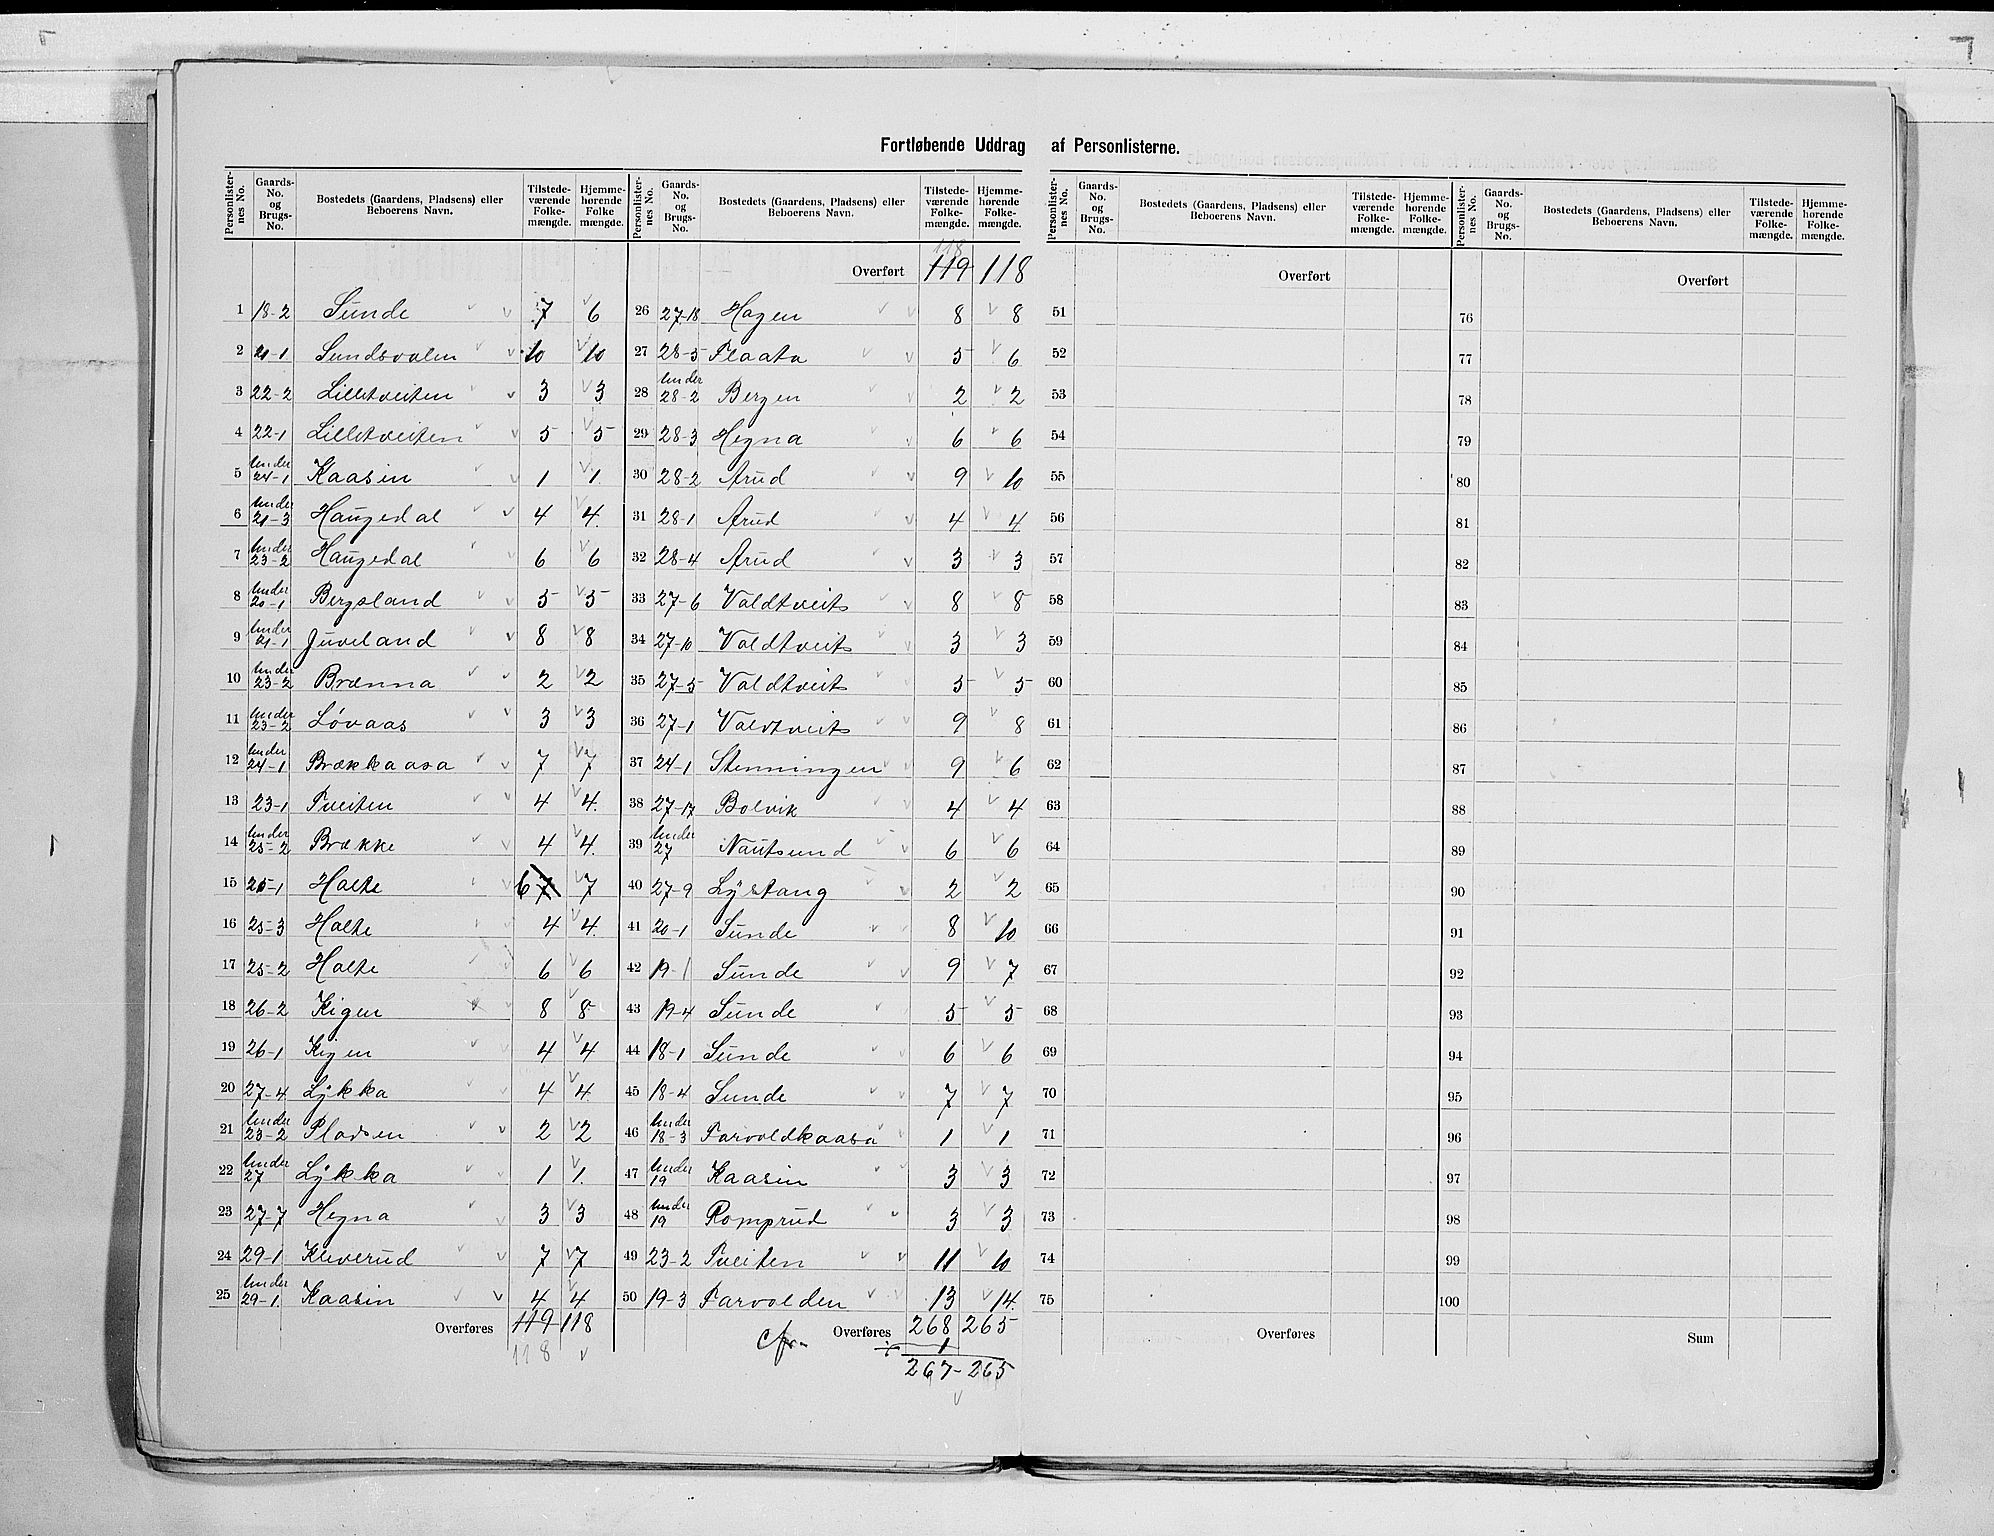 Fortløbende Uddrag af Personlisterne.
Personlister-nes No. Gaards-No. og Brugs-No. Bostedets (Gaardens, Pladsens) eller Beboerens Navn. Tilstede-værende Folke-mængde. Hjemme-hørende Folke mængde. Personlister-nes No. Gaards-No. og Brugs-No. Bostedets (Gaardens, Pladsens) eller Beboerens Navn. Tilstede-værende Folke-mængde. Hjemme-hørende Folke-mængde.
118
Overført 119 118
1 18-2 Sunde 7 6
2 21-1 Sundsvalen 10 10
3 22-2 Lilletveiten 3 3
4 22-1 Lilletveiten 5 5
5 Under 24-1 Kaasin 1 1
6 Under 21-3 Haugedal 4 4
7 Under 23-2 Haugedal 6 6
8 Under 20-1 Bergsland 5 5
9 Under 21-1 Juveland 8 8
10 Under 23-2 Brænna 2 2
11 Under 23-2 Løvaas 3 3
12 Under 24-1 Brækkaasa 7 7
13 23-1 Tveiten 4 4
14 Under 25-2 Brække 4 4
15 25-1 Holte 6 7 7
16 25-3 Holte 4 4
17 25-2 Holte 6 6
18 26-2 Kigen 8 8
19 26-1 Kigen 4 4
20 27-4 Lykka 4 4
21 Under 23-2 Pladsen 2 2
22 Under 27 Lykka 1 1
23 27-7 Hegna 3 3
24 29-1 Kleverud 7 7
25 Under 29-1 Kaasin 4 4
Overføres 119 118
118
26 27-18 Hagen 8 8
27 28-5 Flaata 5 6
28 Under 28-2 Bergen 2 2
29 28-3 Hegna 6 6
30 28-2 Arud 9 10
31 28-1 Arud 4 4
32 28-4 Arud 3 3
33 27-6 Valdtveit 8 8
34 27-10 Valdtveit 3 3
35 27-5 Valdtveit 5 5
36 27-1 Valdtveit 9 8
37 24-1 Stenningen 9 6
38 27-17 Bolvik 4 4
39 Under 27 Nautsund 6 6
40 27-9 Lystang 2 2
41 20-1 Sunde 8 10
42 19-1 Sunde 9 7
43 19-4 Sunde 5 5
44 18-1 Sunde 6 6
45 18-4 Sunde 7 7
46 Under 18-3 Farvoldkaasa 1 1
47 Under 19 Kaasin 3 3
48 Under 19 Romprud 3 3
49 23-2 Tveiten 11 10
50 19-3 Farvolden 13 14
Overføres 268 265
÷ 1
267 - 265
Personlister-nes No. Gaards-No. og Brugs-No. Bostedets (Gaardens, Pladsens) eller Beboerens Navn. Tilstede-værende Folke-mængde. Hjemme-hørende Folke-mængde. Personlister-nes No. Gaards-No. og Brugs-No. Bostedets (Gaardens, Pladsens) eller Beboerens Navn. Tilstede-værende Folke-mængde. Hjemme-hørende Folke-mængde.
Overført Overført
51 76
52 77
53 78
54 79
55 80
56 81
57 82
58 83
59 84
60 85
61 86
62 87
63 88
64 89
65 90
66 91
67 92
68 93
69 94
70 95
71 96
72 97
73 98
74 99
75 100
Overføres Sum